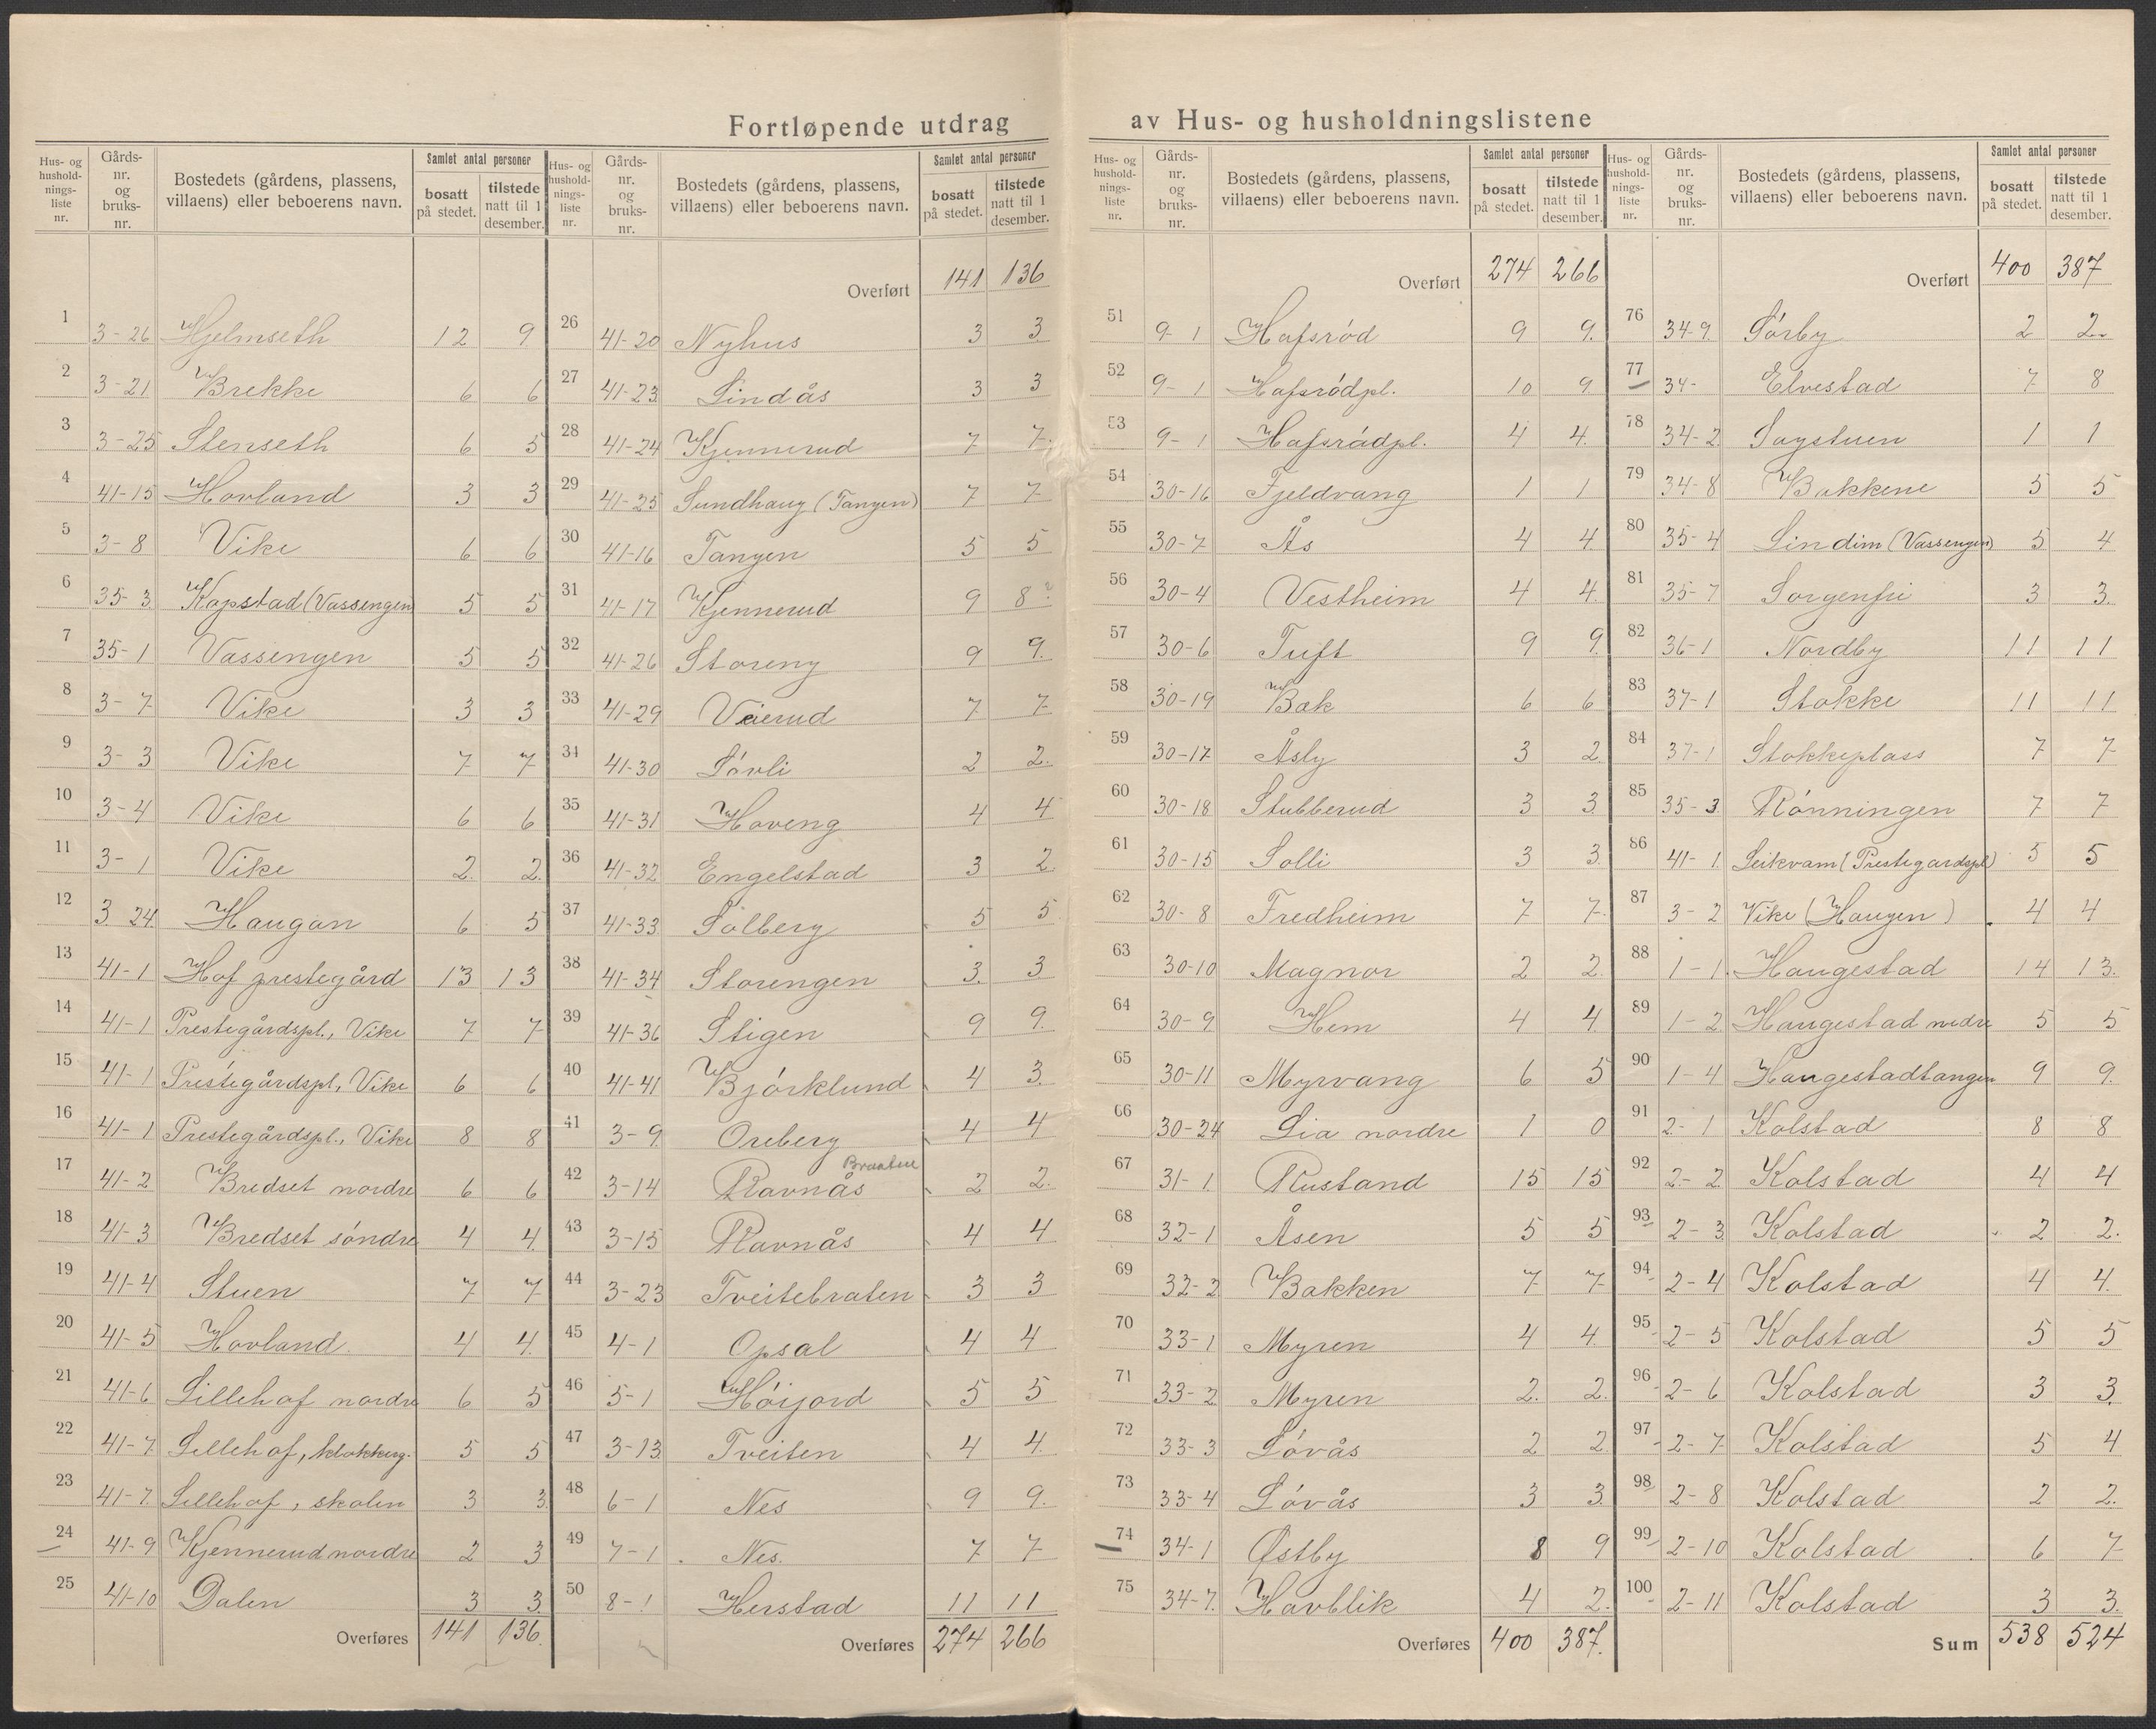 Fortløpende utdrag av Hus- og husholdningslistene
Hus- og husholdnings- liste nr. | Gårds- nr. og bruks- nr. | Bostedets (gårdens, plassens, villaens) eller beboerens navn. | Samlet antal personer | bosatt på stedet. | tilstede natt til 1 desember.
1 3-26 Hjelmseth 12 9
2 3-21 Brekke 6 6
3 3-25 Stenseth 6 5
4 41-15 Hovland 3 3
5 3-8 Vike 6 6
6 35-3 Kopstad (Vassengen 5 5
7 35-1 Vassengen 5 5
8 3-7 Vike 3 3
9 3-3 Vike 7 7
10 3-4 Vike 6 6
11 3-1 Vike 2 2
12 3 24 Haugan 6 5
13 41-1 Hof prestegård 13 13
14 41-1 Prestegårdspl., Vike 7 7
15 41-1 Prestegårdspl., Vike 6 6
16 41-1 Prestegårdspl., Vike 8 8
17 41-2 Bredset nordre 6 6
18 41-3 Bredset söndre 4 4
19 41-4 Stuen 7 7
20 41-5 Hovland 4 4
21 41-6 Lillehof nordre 6 5
22 41-7 Lillehof, klokkerg. 5 5
23 41-7 Lillehof, skolen 3 3
24 41-9 Kjennerud nordre 2 3
25 41-10 Dalen 3 3
Overføres 141 136
Hus- og husholdnings- liste nr. | Gårds- nr. og bruks- nr. | Bostedets (gårdens, plassens, villaens) eller beboerens navn. | Samlet antal personer | bosatt på stedet. | tilstede natt til 1 desember.
Overført 141 136
26 41-20 Nyhus 3 3
27 41-23 Lindås 3 3
28 41-24 Kjennerud 7 7
29 41-25 Sundhaug (Tangen) 7 7
30 41-16 Tangen 5 5
31 41-17 Kjennerud 9 8?
32 41-26 Storeng 9 9
33 41-29 Veierud 7 7
34 41-30 Lövli 2 2
35 41-31 Hoveng 4 4
36 41-32 Engelstad 3 2
37 41-33 Solberg 5 5
38 41-34 Storengen 3 3
39 41-36 Stigen 9 9
40 41-41 Björklund 4 3
41 3-9 Oreberg 4 4
Braaten
42 3-14 Ravnås 2 2
43 3-15 Ravnås 4 4
44 3-23 Tveitebraten 3 3
45 4-1 Opsal 4 4
46 5-1 Höijord 5 5
47 3-13 Tveiten 4 4
48 6-1 Nes 9 9
49 7-1 Nes. 7 7
50 8-1 Herstad 11 11
Overføres 274 266
Hus- og husholdnings- liste nr. | Gårds- nr. og bruks- nr. | Bostedets (gårdens, plassens, villaens) eller beboerens navn. | Samlet antal personer | bosatt på stedet. | tilstede natt til 1 desember.
Overført 274 266
51 9-1 Hafsröd 9 9
52 9-1 Hafsrödpl. 10 9
53 9-1 Hafsrödpl. 4 4
54 30-16 Fjeldvang 1 1
55 30-7 Ås 4 4
56 30-4 Vestheim 4 4
57 30-6 Tuft 9 9
58 30-19 Bak 6 6
59 30-17 Åsly 3 2
60 30-18 Stubberud 3 3
61 30-15 Solli 3 3
62 30-8 Fredheim 7 7
63 30-10 Magnor 2 2
64 30-9 Hem 4 4
65 30-11 Myrvang 6 5
66 30-24 Lia nordre 1 0
67 31-1 Rustand 15 15
68 32-1 Åsen 5 5
69 32-2 Bakken 7 7
70 33-1 Myren 4 4
71 33-2 Myren 2 2
72 33-3 Lövås 2 2
73 33-4 Lövås 3 3
74 34-1 Østby 8 9
75 34-7 Havblik 4 2
Overføres 400 387
Hus- og husholdnings- liste nr. | Gårds- nr. og bruks- nr. | Bostedets (gårdens, plassens, villaens) eller beboerens navn. | Samlet antal personer | bosatt på stedet. | tilstede natt til 1 desember.
Overført 400 387
76 34-9 Sörby 2 2
77 34- Elvestad 7 8
78 34-2 Sagstuen 1 1
79 34-8 Bakkene 5 5
80 35-4 Lindim (Vassengen) 5 4
81 35-7 Sorgenfri 3 3
82 36-1 Nordby 11 11
83 37-1 Stokke 11 11
84 37-1 Stokkeplass 7 7
85 35-3 Rönningen 7 7
86 41-1 Leikvam (Prestegardspl) 5 5
87 3-2 Vike (Haugen) 4 4
88 1-1 Haugestad 14 13
89 1-2 Haugestad nedre 5 5
90 1-4 Haugestadtangen 9 9
91 2-1 Kolstad 8 8
92 2-2 Kolstad 4 4
93 2-3 Kolstad 2 2
94 2-4 Kolstad 4 4
95 2-5 Kolstad 5 5
96 2-6 Kolstad 3 3
97 2-7 Kolstad 5 4
98 2-8 Kolstad 2 2
99 2-10 Kolstad 6 7
100 2-11 Kolstad 3 3
Sum 538 524